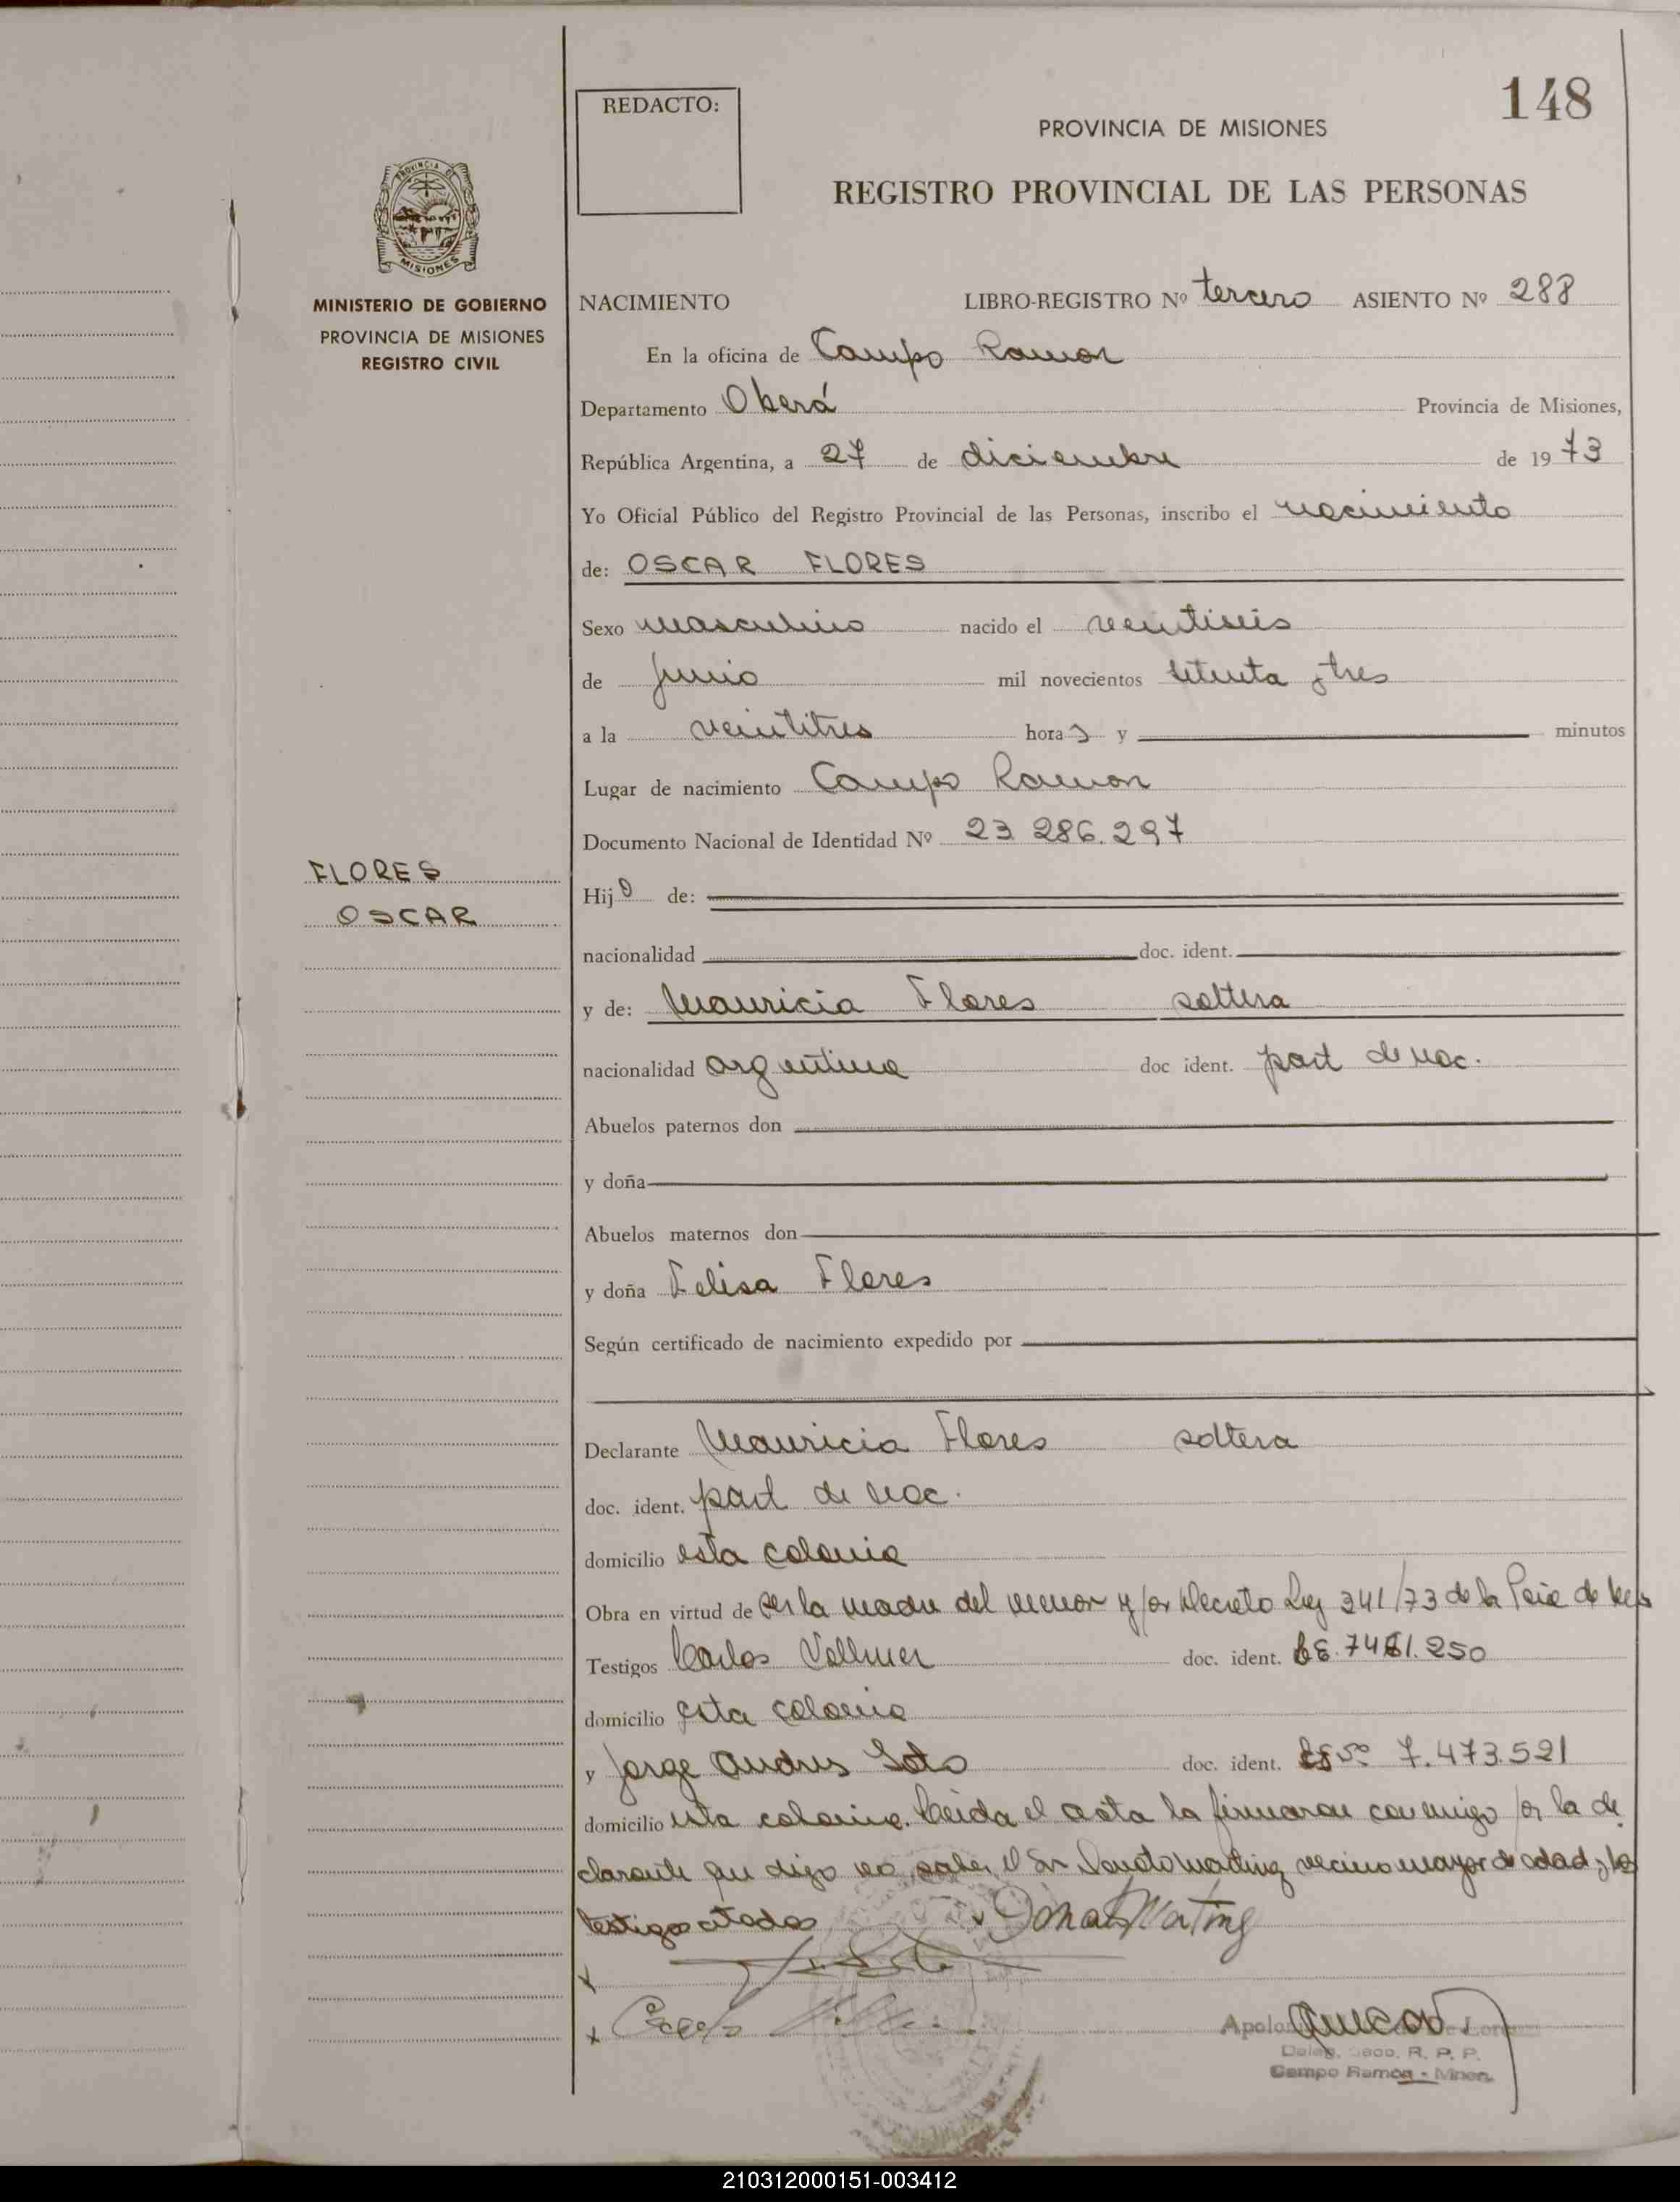 148
REDACTO:
PROVINCIA DE MISIONES
REGISTRO PROVINCIAL DE LAS PERSONAS
PROVINCIA DE
MISIONES
MINISTERIO DE GOBIERNO
PROVINCIA DE MISIONES
REGISTRO CIVIL
NACIMIENTO LIBRO-REGISTRO Nº tercero ASIENTO Nº 288
En la oficina de Campo Ramon
Departamento Oberá Provincia de Misiones,
República Argentina, a 27 de diciembre de 1973
Yo Oficial Público del Registro Provincial de las Personas, inscribo el nacimiento
de: OSCAR FLORES
Sexo masculino nacido el veintiseis
de Junio mil novecientos setenta y tres
a la veintitres horas y minutos
Lugar de nacimiento Campo Ramon
Documento Nacional de Identidad Nº 23 286.297
FLORES
OSCAR
Hijo de:
nacionalidad doc. ident.
y de: Mauricia Flores soltera
nacionalidad argentina doc ident. part de nac.
Abuelos paternos don
y doña
Abuelos maternos don
y doña Felisa Flores
Según certificado de nacimiento expedido por
Declarante Mauricia Flores soltera
doc. ident. part de nac.
domicilio esta colonia
Obra en virtud de ser la madre del menor y/or Decreto Ley 341/73 de la Pcia de
Testigos Carlos Vollmer doc. ident. .250
domicilio esta colonia
y Jorge Andres Soto doc. ident. 7.473.521
domicilio esta colonia. Leida el acta la firmaron conmigo por la de
clarante que dijo no saber el Sr vecino mayor de edad y los
testigos citados
Deleg. R. P. P.
Campo Ramon - Mnes.
210312000151-003412